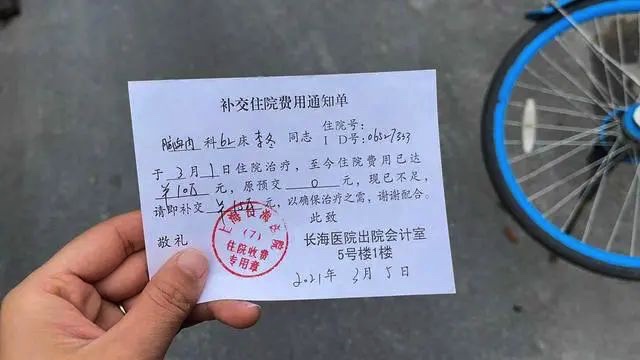 补交住院费用通知单
住院号:
脑内 科62床 李冬 同志 I D号:06527353
于 3月1日住院治疗,至今住院费用已达
￥10万 元,原预交 0 元,现已不足,
请即补交 ￥15万 元,以确保治疗之需,谢谢配合。
此致
敬礼
长海医院出院会计室
5号楼1楼
2021年 3月 5日
上海长海医院
(7)
住院收费
专用章